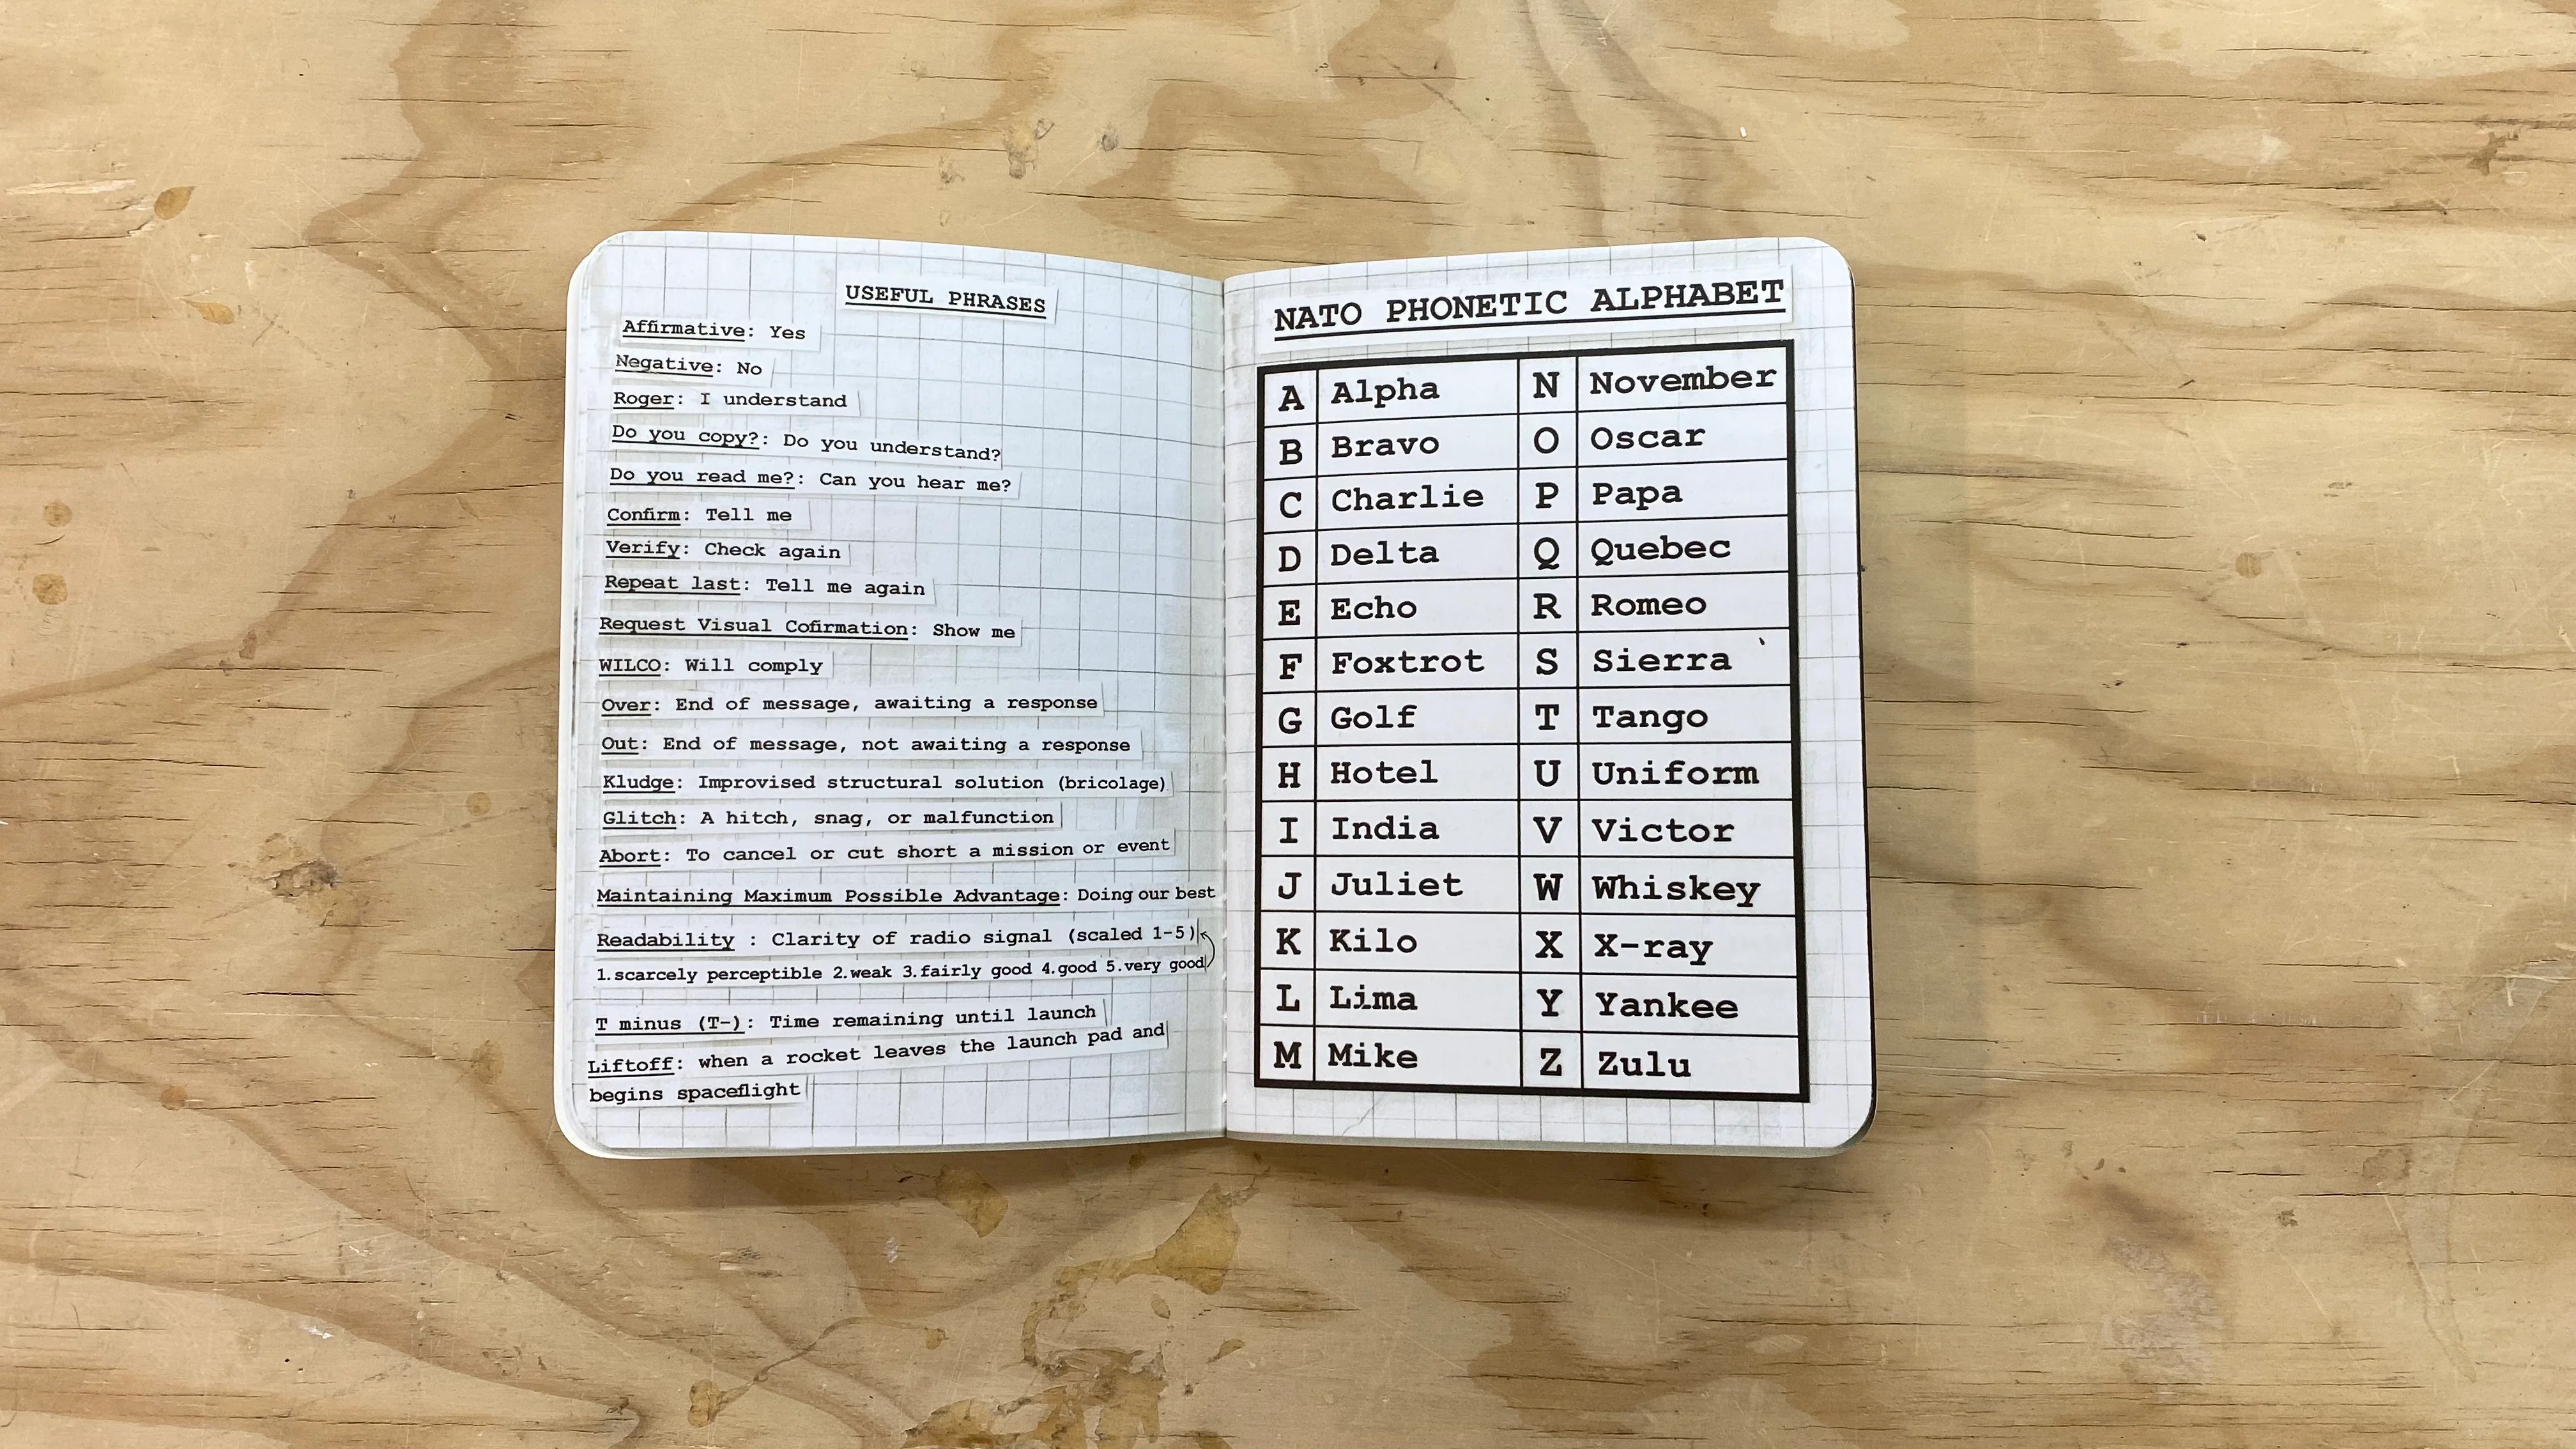 USEFUL PHRASES
Affirmative: Yes
Negative: No
Roger: I understand
Do you copy?: Do you understand?
Do you read me?: Can you hear me?
Confirm: Tell me
Verify: Check again
Repeat last: Tell me again
Request Visual Cofirmation: Show me
WILCO: Will comply
Over: End of message, awaiting a response
Out: End of message, not awaiting a response
Kludge: Improvised structural solution (bricolage)
Glitch: A hitch, snag, or malfunction
Abort: To cancel or cut short a mission or event
Maintaining Maximum Possible Advantage: Doing our best
Readability : Clarity of radio signal (scaled 1-5)
1.scarcely perceptible 2.weak 3.fairly good 4.good 5.very good
T minus (T-): Time remaining until launch
Liftoff: when a rocket leaves the launch pad and
begins spaceflight
NATO PHONETIC ALPHABET
A Alpha N November
B Bravo O Oscar
C Charlie P Papa
D Delta Q Quebec
E Echo R Romeo
F Foxtrot S Sierra
G Golf T Tango
H Hotel U Uniform
I India V Victor
J Juliet W Whiskey
K Kilo X X-ray
L Lima Y Yankee
M Mike Z Zulu